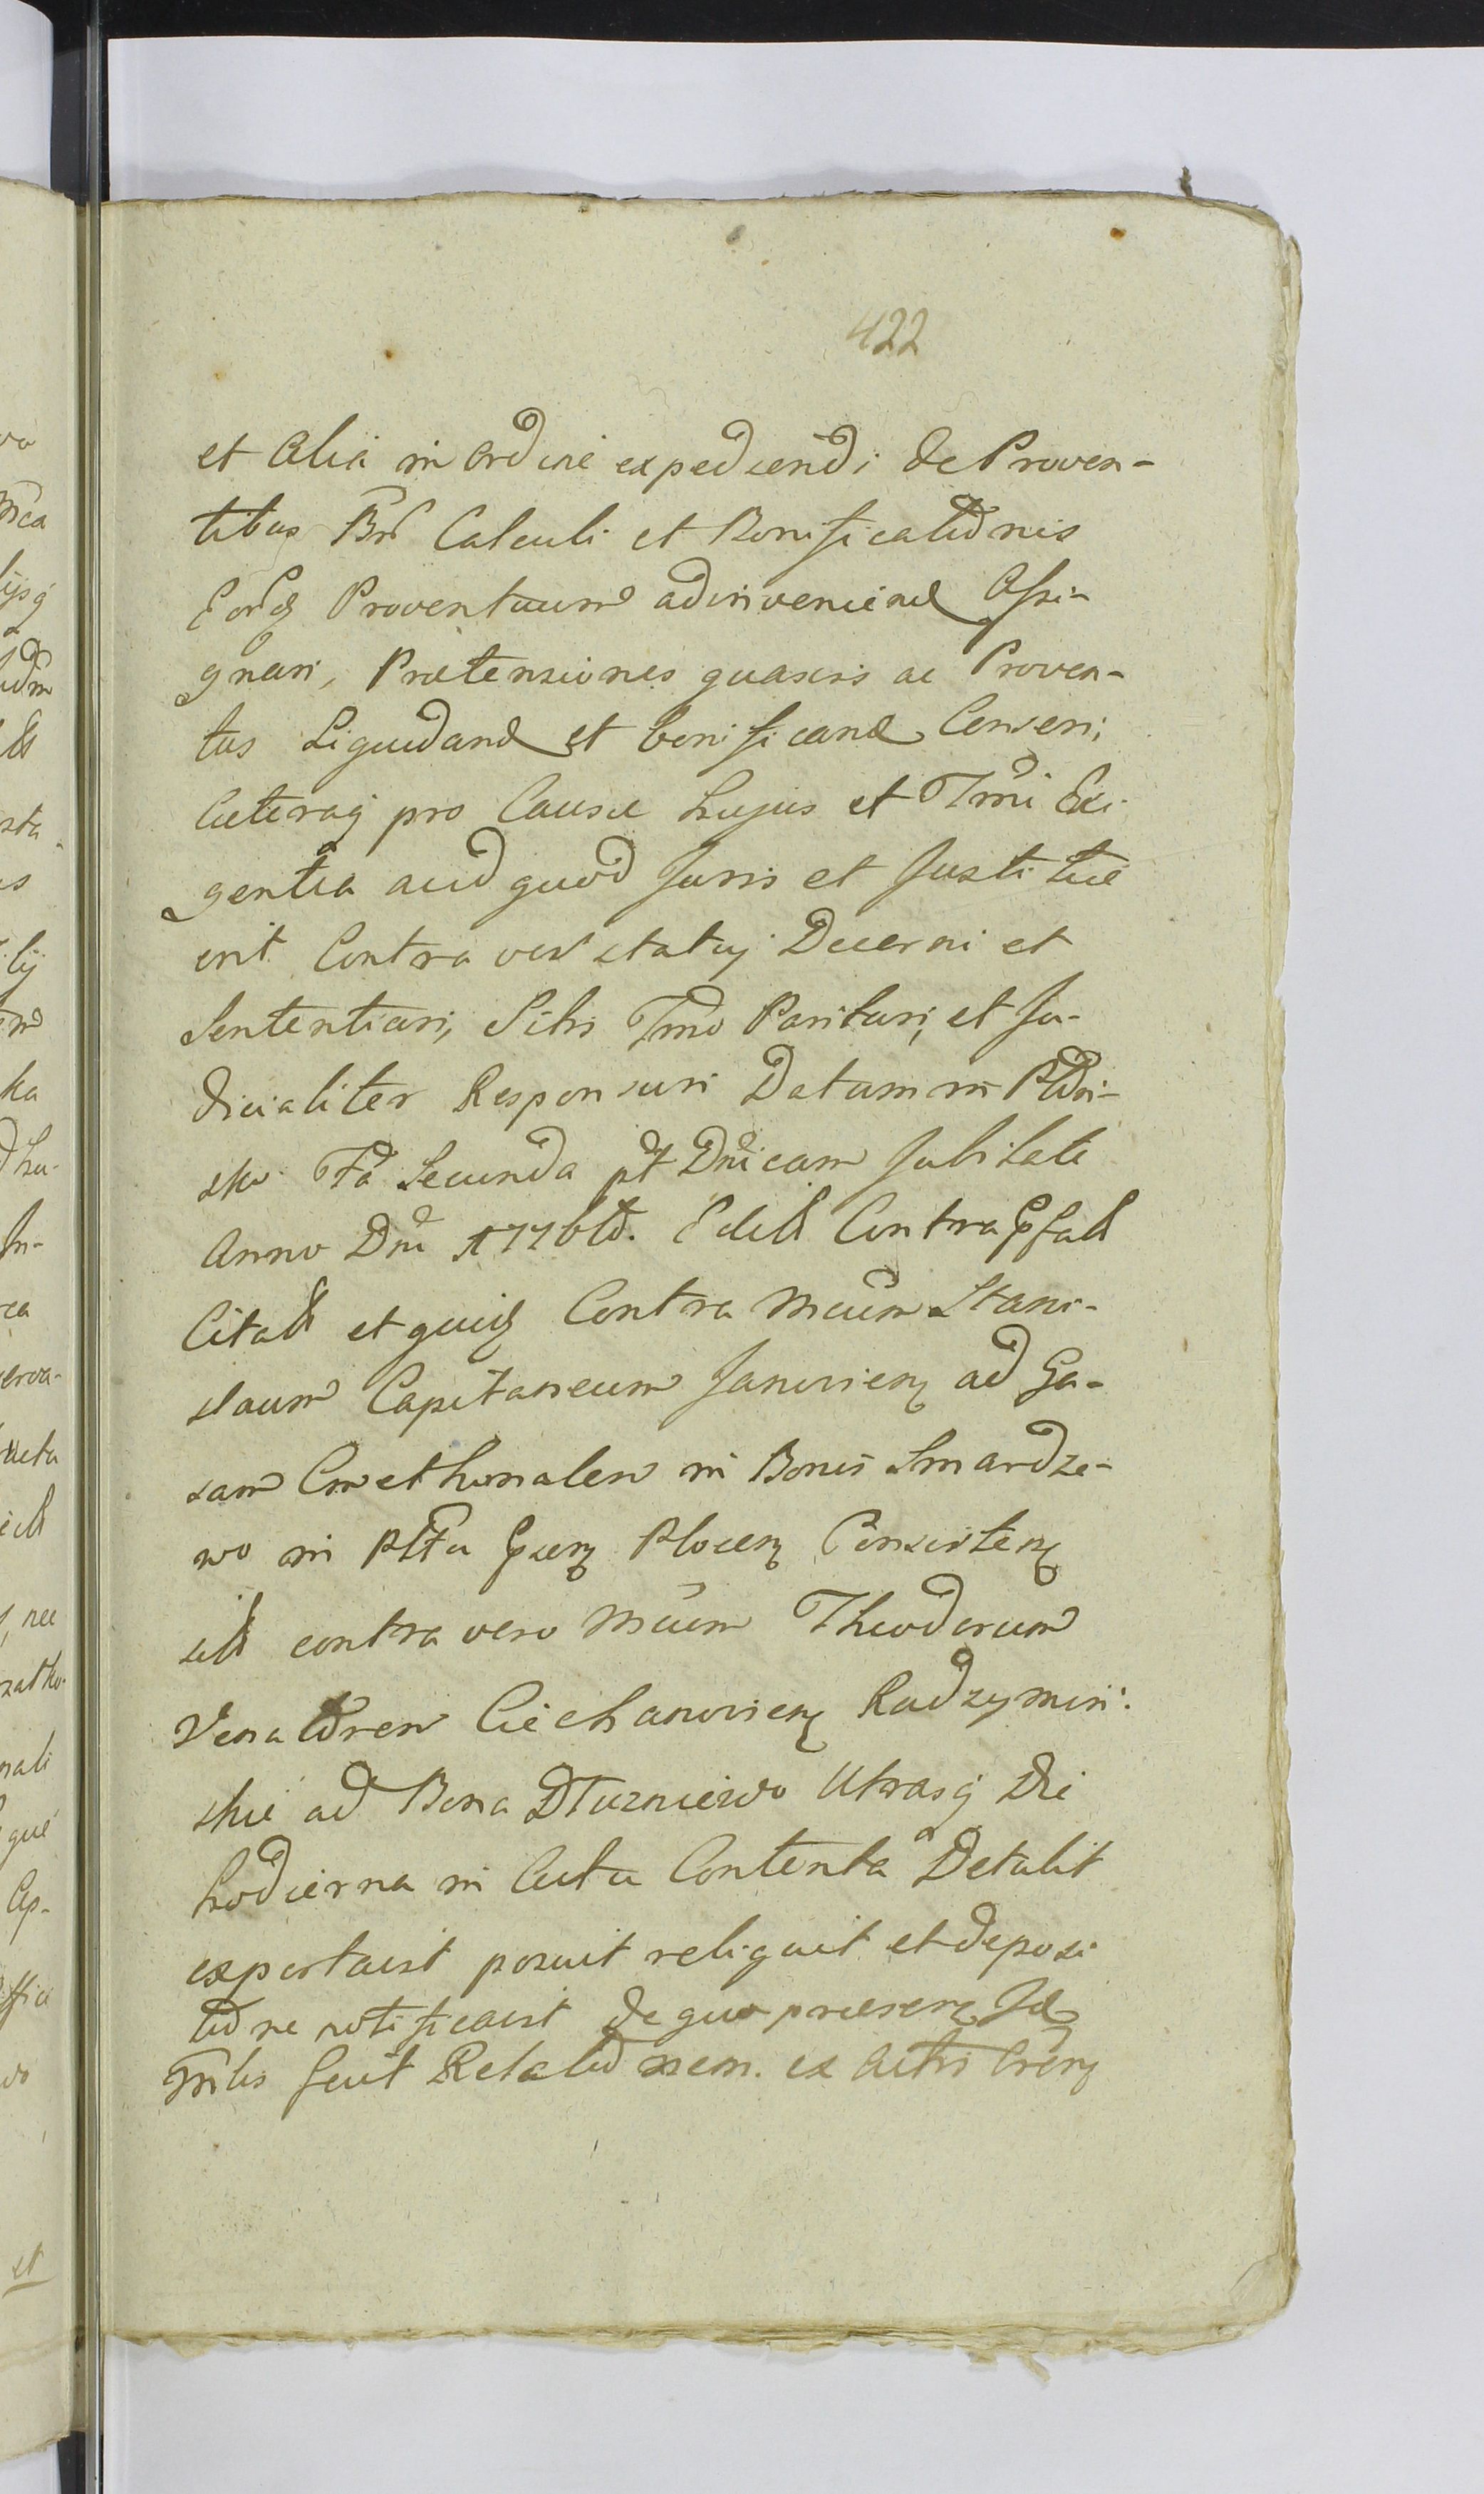 422
et Alia in Ordine expediendi de Proven-
tibus Calculi et Bonificationis
Proventuum adinveniend Assi-
gnari, Praetensiones quasvis ac Proven-
tus Liquidand et bonificand Censeri,
Caeteraq pro Causae hujus et Tmi Exi-
gentia aud quod Juris et Justitiae
erit Contra vos statuj Decerni et
Sententiari, Sitis Tmo Parituri, et Ju-
dicialiter Responsuri Datum in
sko Fa Secunda pt Dnicam Jubilate
Anno Dni Contra
Citatt et quidq Contra Mcum Stani-
slaum Capitaneum Janovienq ad Ga-
sam Cmethonalem in Bonis Smardze-
wo in Plttu Plocenq Consistenq
contra vero Mcum Theodorum
Venatorem Ciechanovienq Radzymin:
skie ad Bona Dłuzniewo Utrasq Die
hodierna in Actu Contenta Detulit
exportavit posuit reliquit et deposi
tione notificavit de quo praesenq
fecit Relationem. ex Actis